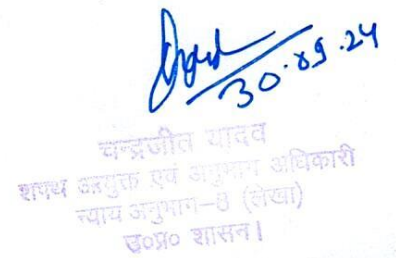 30.09.24
चन्द्रजीत यादव
शपथ आयुक्त एवं अनुभाग अधिकारी
न्याय अनुभाग-8 (लेखा)
उ०प्र० शासन।